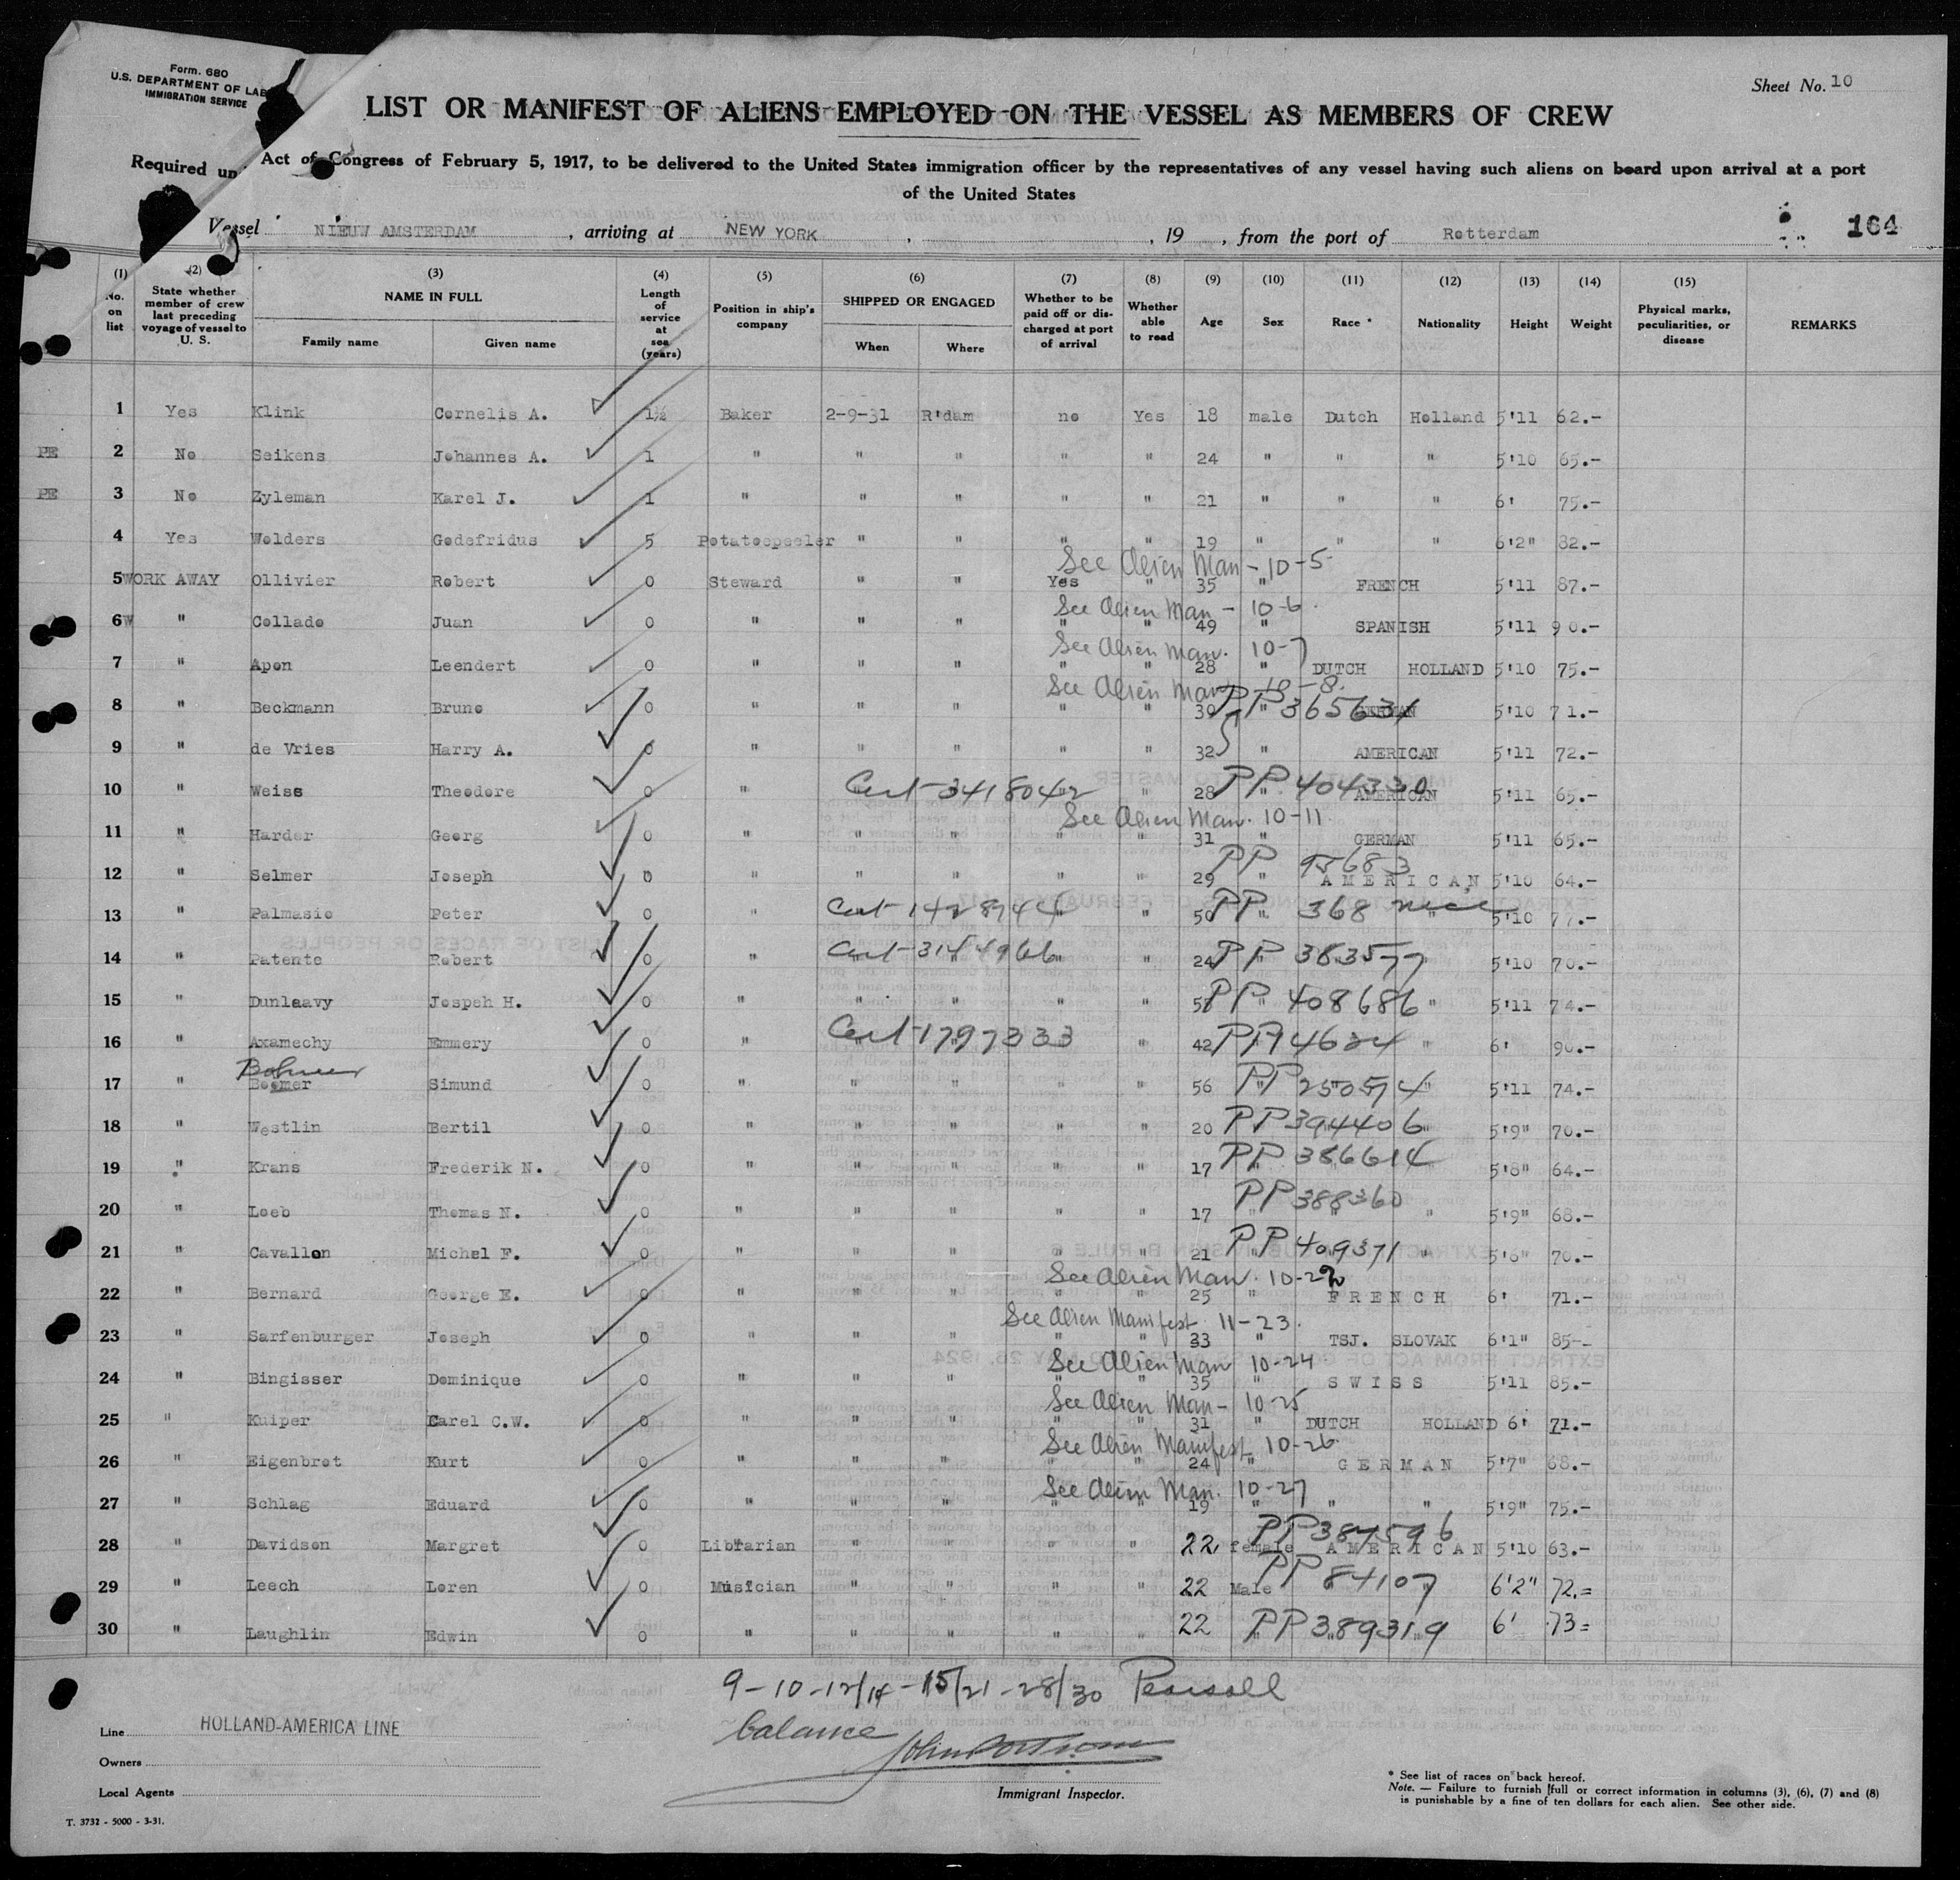 Form. 680
U.S. DEPARTMENT OF LAB
IMMIGRATION SERVICE
Sheet No. 10
LIST OR MANIFEST OF ALIENS EMPLOYED ON THE VESSEL AS MEMBERS OF CREW
Required un Act of Congress of February 5, 1917, to be delivered to the United States immigration officer by the representatives of any vessel having such aliens on board upon arrival at a port
of the United States
Vessel NIEUW AMSTERDAM, arriving at NEW YORK, , 19 , from the port of Rotterdam 164
(1) No. on list (2) State whether member of crew last preceding voyage of vessel to U. S. (3) NAME IN FULL Family name Given name (4) Length of service at sea (years) (5) Position in ship's company (6) SHIPPED OR ENGAGED When Where (7) Whether to be paid off or discharged at port of arrival (8) Whether able to read (9) Age (10) Sex (11) Race * (12) Nationality (13) Height (14) Weight (15) Physical marks, peculiarities, or disease REMARKS
1 Yes Klink Cornelis A. 1½ Baker 2-9-31 R'dam no Yes 18 male Dutch Holland 5'11 62.-
PE 2 No Seikens Johannes A. 1 " " " " " 24 " " " 5'10 65.-
PE 3 No Zyleman Karel J. 1 " " " " " 21 " " " 6' 75.-
4 Yes Wolders Godefridus 5 Potatoepeeler " " " " 19 " " " 6'2" 82.-
See Alien Man - 10-5
5 WORK AWAY Ollivier Robert 0 Steward " " Yes " 35 " FRENCH 5'11 87.-
See Alien Man - 10-6
6 W " Collado Juan 0 " " " " " 49 " SPANISH 5'11 90.-
See Alien Man. 10-7
7 " Apon Leendert 0 " " " " " 28 " DUTCH HOLLAND 5'10 75.-
See Alien Man 10-8.
8 " Beckmann Bruno 0 " " " " " 30 " GERMAN 5'10 71.-
PP 365631
9 " de Vries Harry A. 0 " " " " " 32 " AMERICAN 5'11 72.-
10 " Weiss Theodore 0 " Cert-3418042 " 28 PP 404330 AMERICAN 5'11 65.-
See Alien Man. 10-11
11 " Harder Georg 0 " " " " " 31 " GERMAN 5'11 65.-
PP 95683
12 " Selmer Joseph 0 " " " " " 29 " AMERICAN 5'10 64.-
13 " Palmasio Peter 0 " Cert-1428744 " 50 PP 368 " 5'10 77.-
14 " Patente Robert 0 Cert-3144966 " 24 PP 363577 5'10 70.-
15 " Dunleavy Jospeh H. 0 " " " " " PP 408686 " 5'11 74.-
16 " Axamechy Emmery 0 " Cert-1797333 " 42 PP 94634 " 6' 90.-
Bohmer
17 " Boomer Simund 0 " " " " " 56 PP 250574 " 5'11 74.-
18 " Westlin Bertil 0 " " " " " 20 PP 394406 " 5'9" 70.-
19 " Krans Frederik N. 0 " " " " " 17 PP 386614 5'8" 64.-
20 " Loeb Thomas N. 0 " " " " " 17 PP 388360 " 5'9" 68.-
21 " Cavallon Michel F. 0 " " " " " 21 PP 409371 " 5'6" 70.-
See Alien Man. 10-22
22 " Bernard George E. 0 " " " " " 25 " FRENCH 6' 71.-
See Alien Manifest 11-23.
23 " Sarfenburger Joseph 0 " " " " " 33 " TSJ. SLOVAK 6'1" 85-
See Alien Man 10-24
24 " Bingisser Dominique 0 " " " " " 35 " SWISS 5'11 85.-
See Alien Man - 10-25
25 " Kuiper Carel C.W. 0 " " " " " 31 " DUTCH HOLLAND 6' 71.-
See Alien Manifest 10-26
26 " Eigenbrot Kurt 0 " " " " " 24 " GERMAN 5'7" 68.-
See Alien Man. 10-27
27 " Schlag Eduard 0 " " " " " 19 " " " 5'9" 75.-
28 " Davidson Margret 0 Librarian " " " " 22 female PP 387596 AMERICAN 5'10 63.-
29 " Leech Loren 0 Musician " " " " 22 Male PP 84107 " 6'2" 72.=
30 " Laughlin Edwin 0 " " " " " 22 PP 389319 6' 73=
9-10-12/14-15/21-28/30 Pearsall
balance
Line HOLLAND-AMERICA LINE
Owners
Local Agents
Immigrant Inspector.
* See list of races on back hereof.
Note. — Failure to furnish full or correct information in columns (3), (6), (7) and (8)
is punishable by a fine of ten dollars for each alien. See other side.
T. 3732 - 5000 - 3-31.